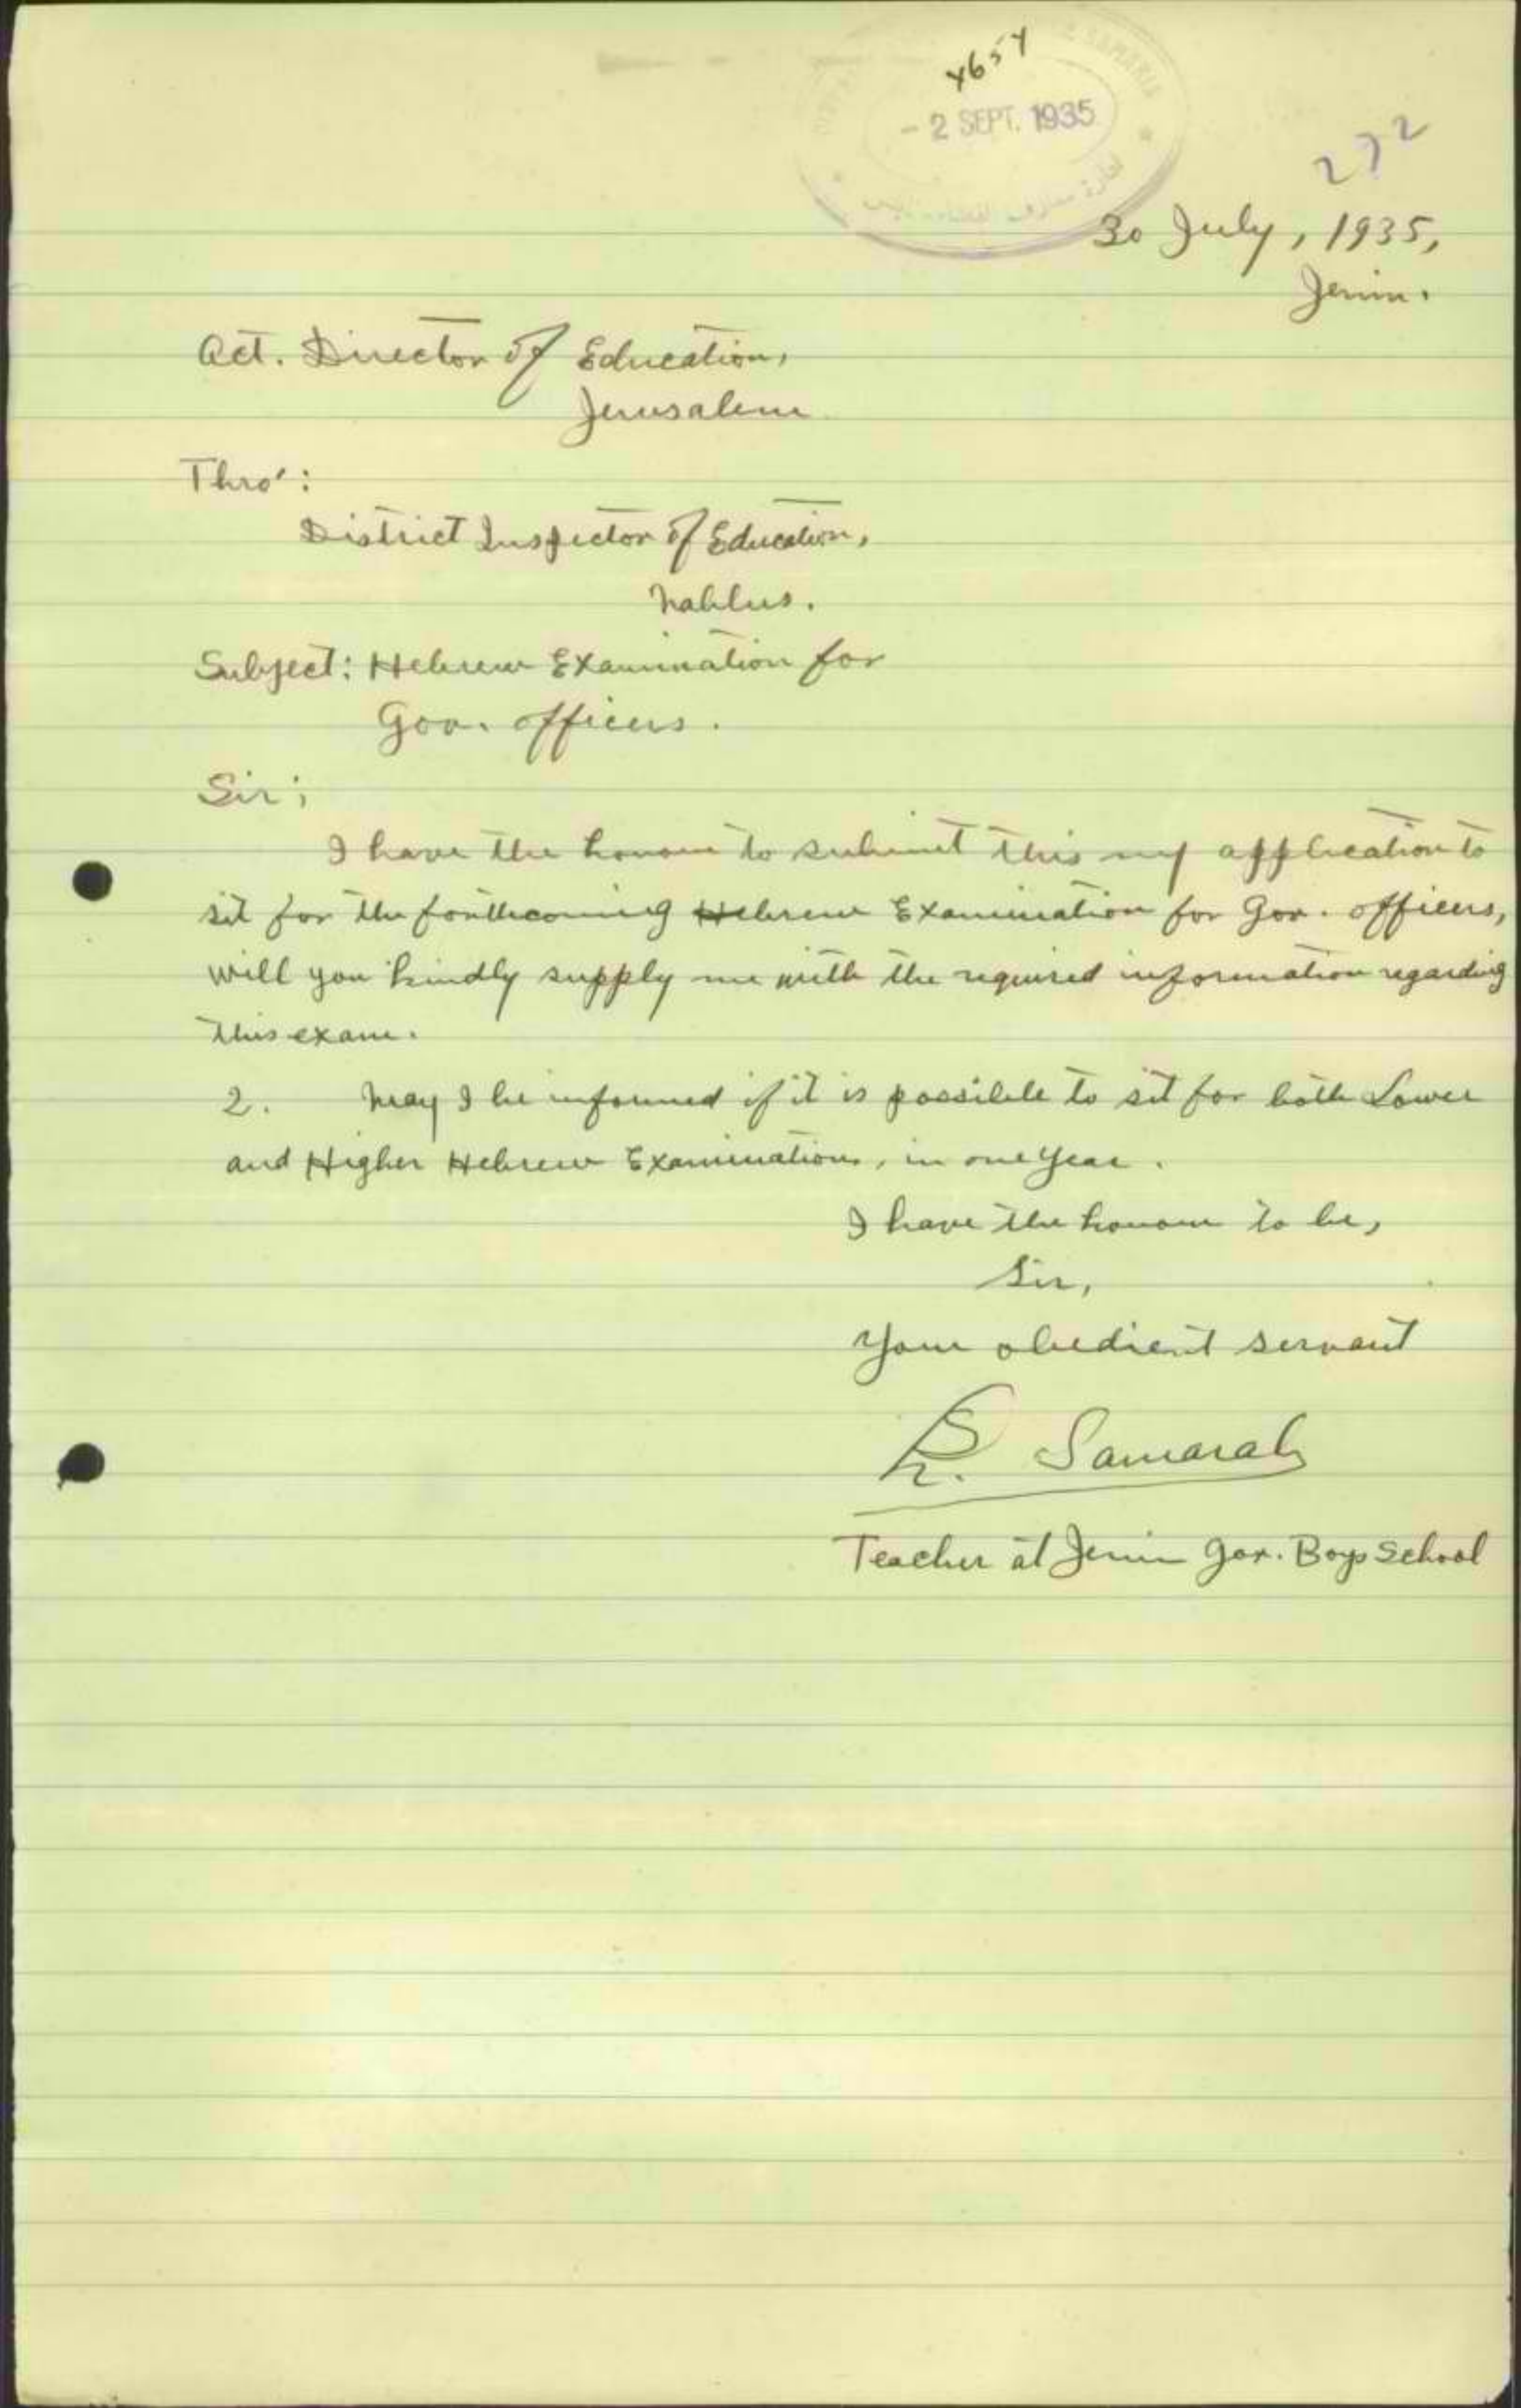 4654
- 2 SEPT. 1935
SAMARIA
272
30 July, 1935,
Jenin.
Act. Director of Education,
Jerusalem
Thro':
District Inspector of Education,
Nablus.
Subject: Hebrew Examination for
Gov. officers.
Sir;
I have the honour to submit this my application to
sit for the forthcoming Hebrew Examination for Gov. officers,
will you kindly supply me with the required information regarding
this exam.
2. May I be informed if it is possible to sit for both Lower
and Higher Hebrew Examinations, in one year.
I have the honour to be,
Sir,
Your obedient servant
Samarah
Teacher at Jenin Gov. Boys School